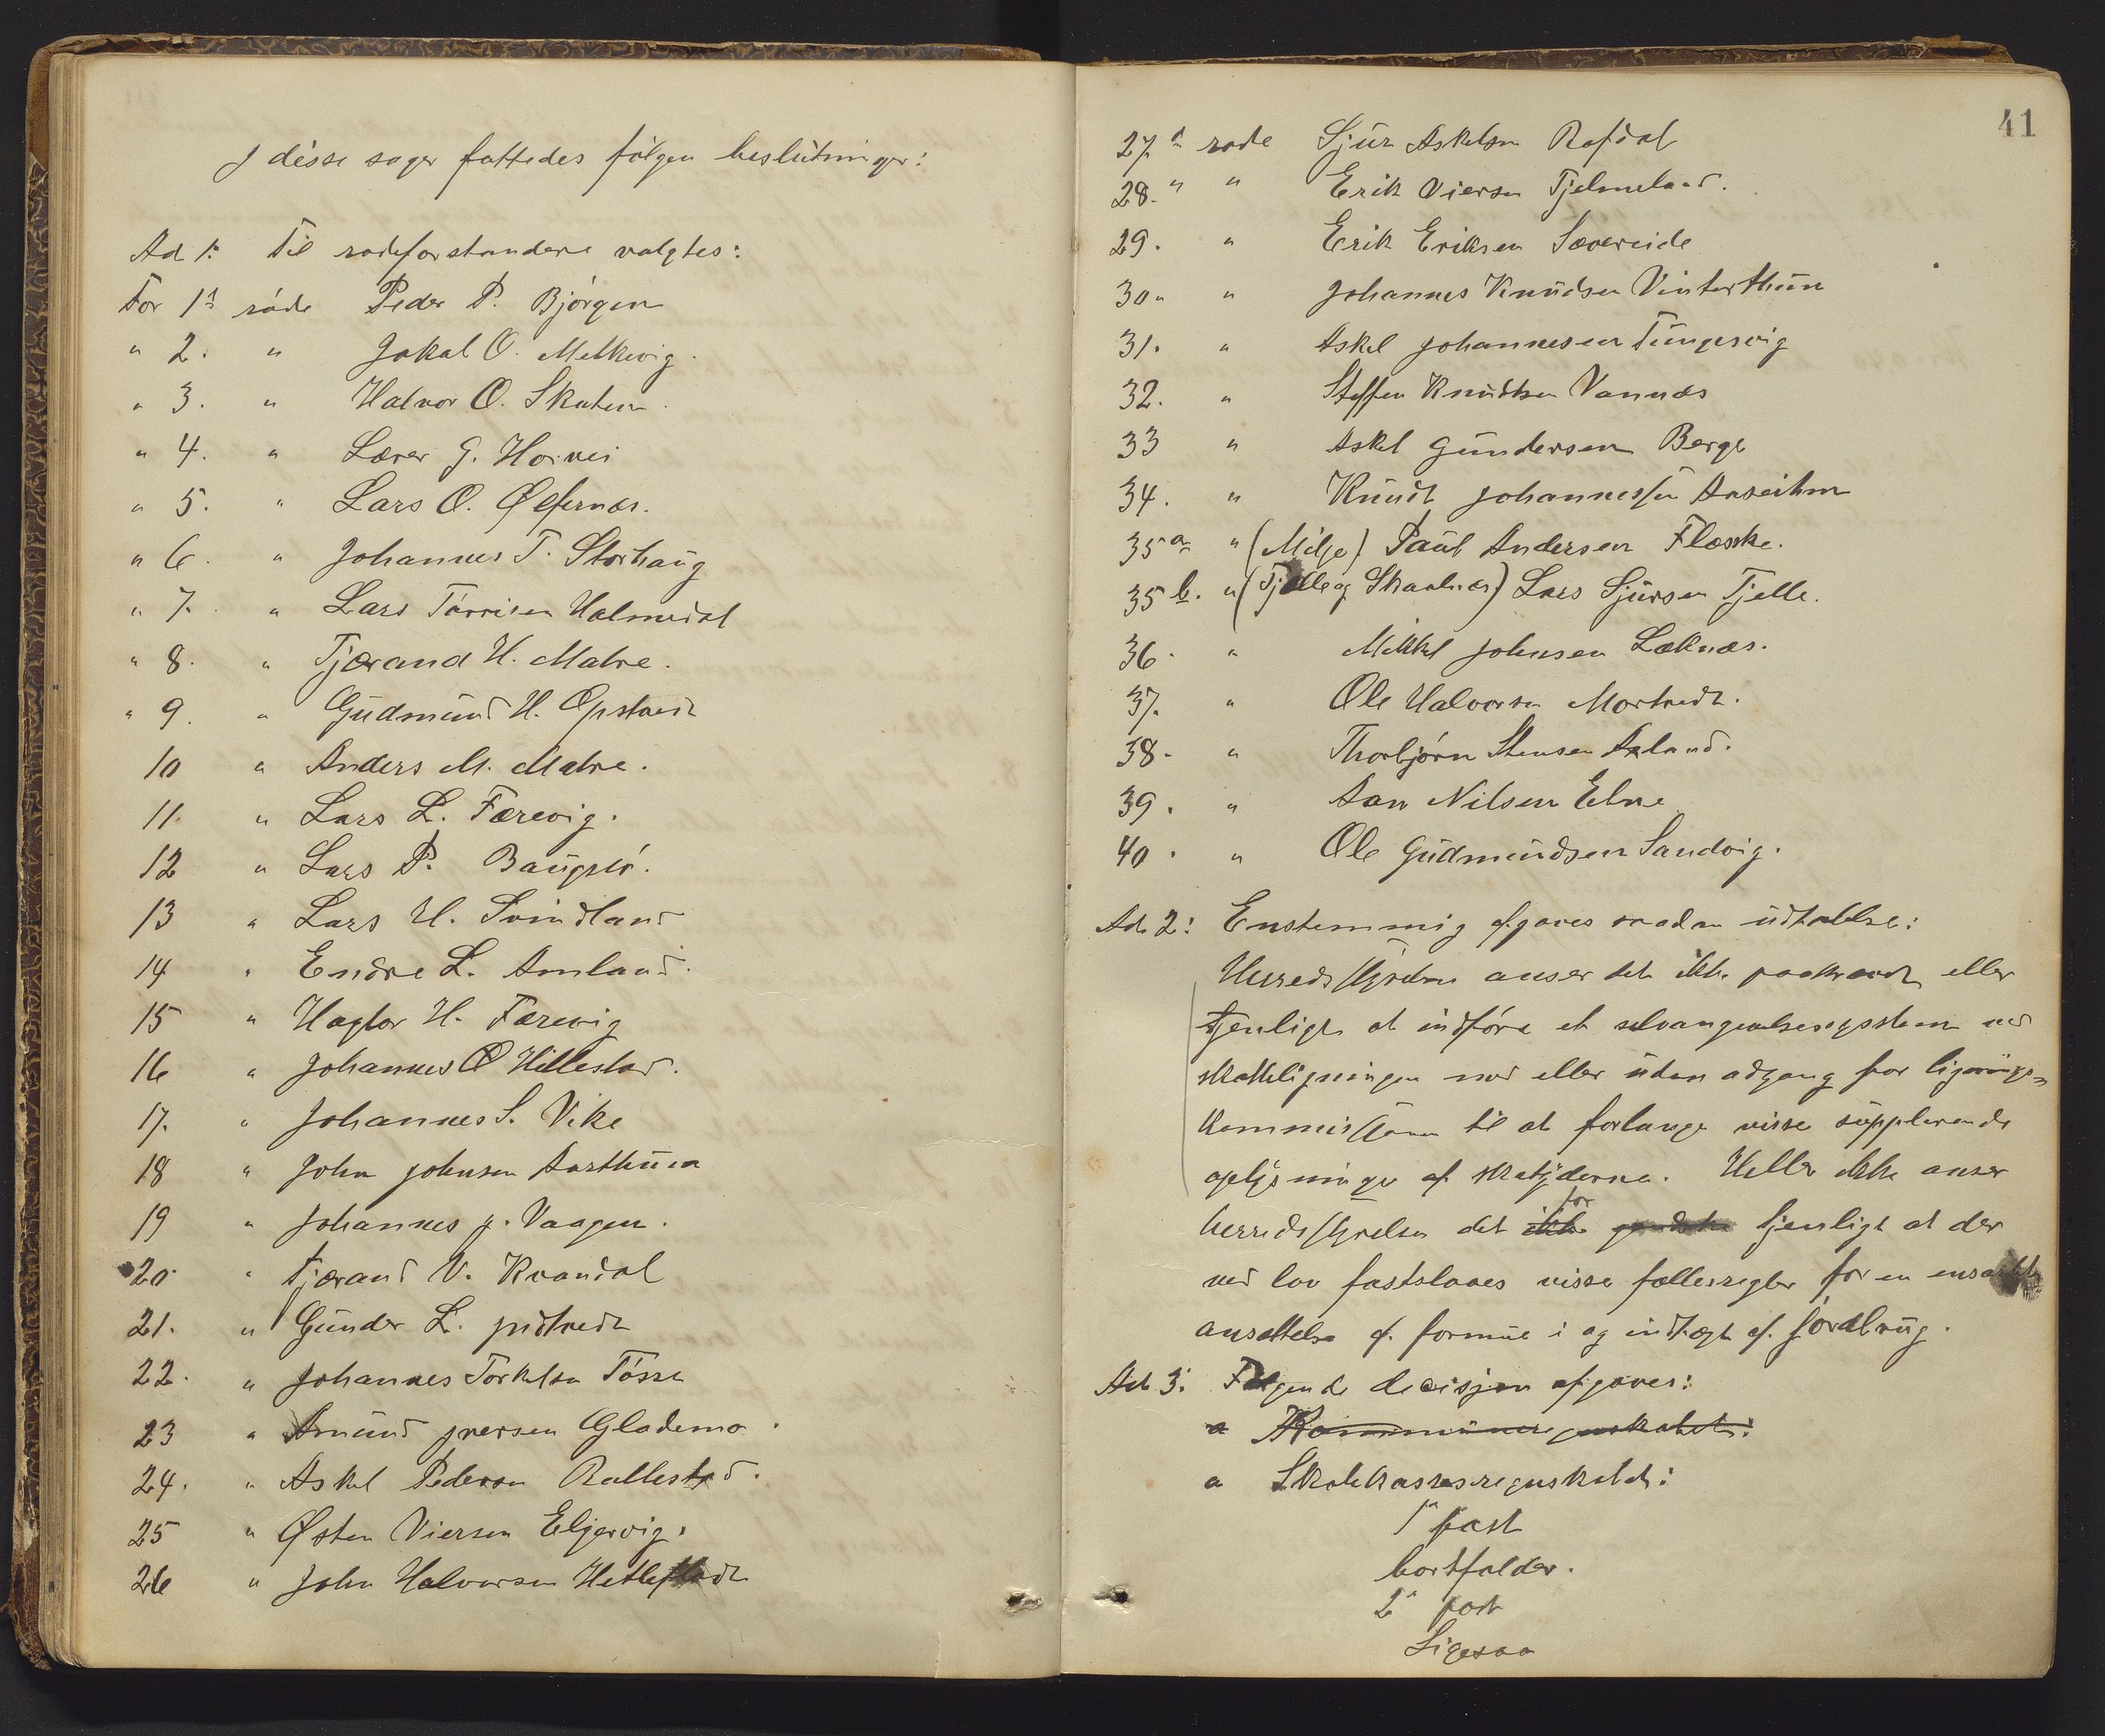 I disse sager fattedes følgen beslutninger:
Ad 1. Til rodeforstandere valgtes:
For 1ste rode Peder P. Bjørgen
" 2. " Jakob O. Melkevig.
" 3. " Halvor O. Skutem
" 4. " Lærer G. Horvei
" 5. " Lars O. Ølfernæs.
" 6. " Johannes T. Storhaug
" 7. " Lars Tørrisen Halmedal
" 8. " Tjærand H. Matre.
" 9. " Gudmund H. Opstvedt
10 " Anders M. Matre.
11. " Lars L. Færevig.
12 " Lars P. Baugstø.
13 " Lars H. Svindland
14 " Endre L. Amland.
15 " Hagtor H. Færevig
16 " Johannes O Hillestad.
17. " Johannes S. Vike
18 " John Johnsen Aarthuen
19 " Johannes J. Vaagen.
20. " Tjærand V. Kvandal
21. " " Gunder L. Indtvedt
22. " Johannes Torkelsen Tøsse
23 " Amund Iversen Glademo.
24. " Askel Pedersen Rallestad.
25 " Østen Viersen Eljervig.
26 " John Halvorsen Hetlestvedt
41
27de rode Sjur Askelsen Rafdal
28. " " Erik Viersen Tjelmeland.
29. " Erik Eriksen Sævereide
30. " Johannes Knudsen Vinterthun
31. " Askel Johannesen Tungesvig
32. " Steffen Knudtsen Vannæs
33 " Askel Gundersen Berge
34. " Knudt Johannessen Aaseihm
35a " (Milje) Paul Andersen Flæske.
35b. " (Tjelle og Skaalnæs) Lars Sjursen Tjelle.
36. " Mikkel Johnsen Læknæs.
37. " Ole Halvorsen Mortvedt.
38. " Thorbjørn Stensen Axland.
39. " Aan Nilsen Elne
40. " Ole Gudmundsen Sandvig.
Ad. 2: Enstemmig afgaves saadan udtalelse:
Herredsstyrelsen anser det ikke paakrævet eller
tjenligt at indføre et selvangivelsessystem ved
skatteligningen med eller uden adgang for lignings-
kommissionen til at forlange visse supplerende
oplysninger af skatyderne. Heller ikke anser
herredsstyrelsen det ikke for tjenligt at der
ved lov fastslaaes visse fællesregler for en ensartet
ansættelse af formue i og indtægt af jordbrug.
Ad 3. Følgende decisjon afgaves:
a Kommuneregnskabet:
a Skolekassesregnskabet:
1 post
bortfalder.
2 post
Ligesaa